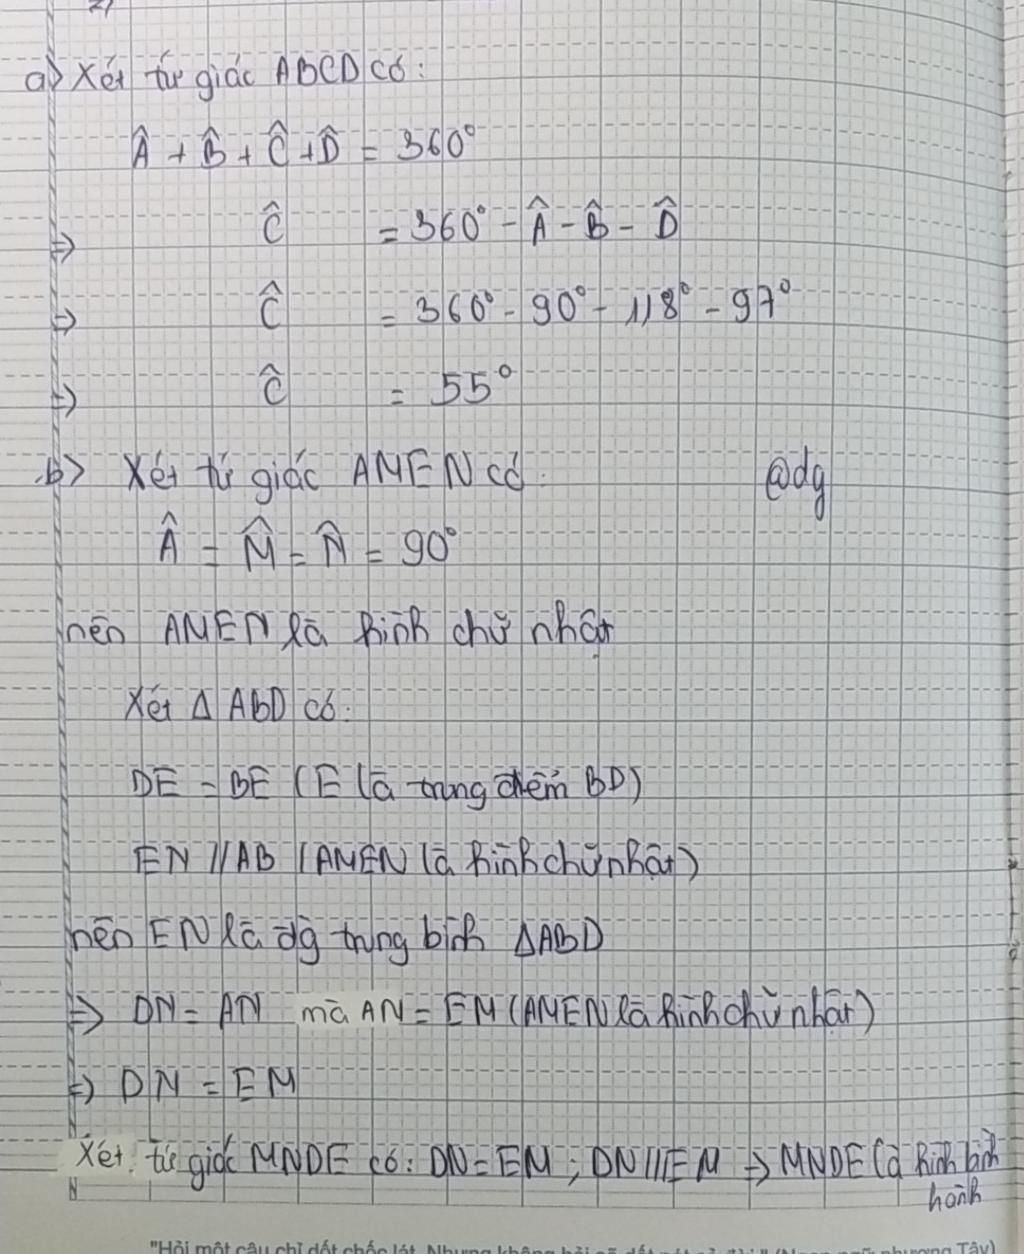 a> Xét tứ giác ABCD có:
Â + B̂ + Ĉ + D̂ = 360°
=> Ĉ = 360° - Â - B̂ - D̂
=> Ĉ = 360° - 90° - 118° - 97°
=> Ĉ = 55°
b> Xét tứ giác AMEN có:
@dg
Â = M̂ = N̂ = 90°
nên AMEN là hình chữ nhật
Xét Δ ABD có:
DE = BE (E là trung điểm BD)
EN // AB (AMEN là hình chữ nhật)
nên EN là đg trung bình ΔABD
=> DN = AN mà AN = EM (AMEN là hình chữ nhật)
=> DN = EM
Xét tứ giác MNDE có: DN = EM ; DN // EM => MNDE là hình bình
hành
"Hỏi một câu chỉ dốt chốc lát. Nhưng không hỏi sẽ dốt nát cả đời." (Ngạn ngữ phương Tây)